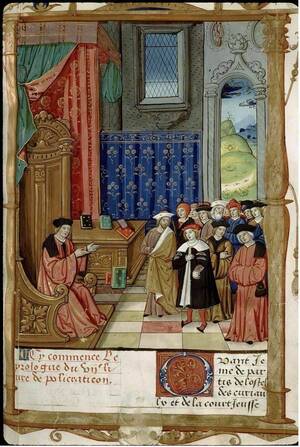 Cy commence Le
prologue du viije li
ure de policaticon.
Quant Je
me de par
tis de lostel
des curiau
lx et de la court feusse